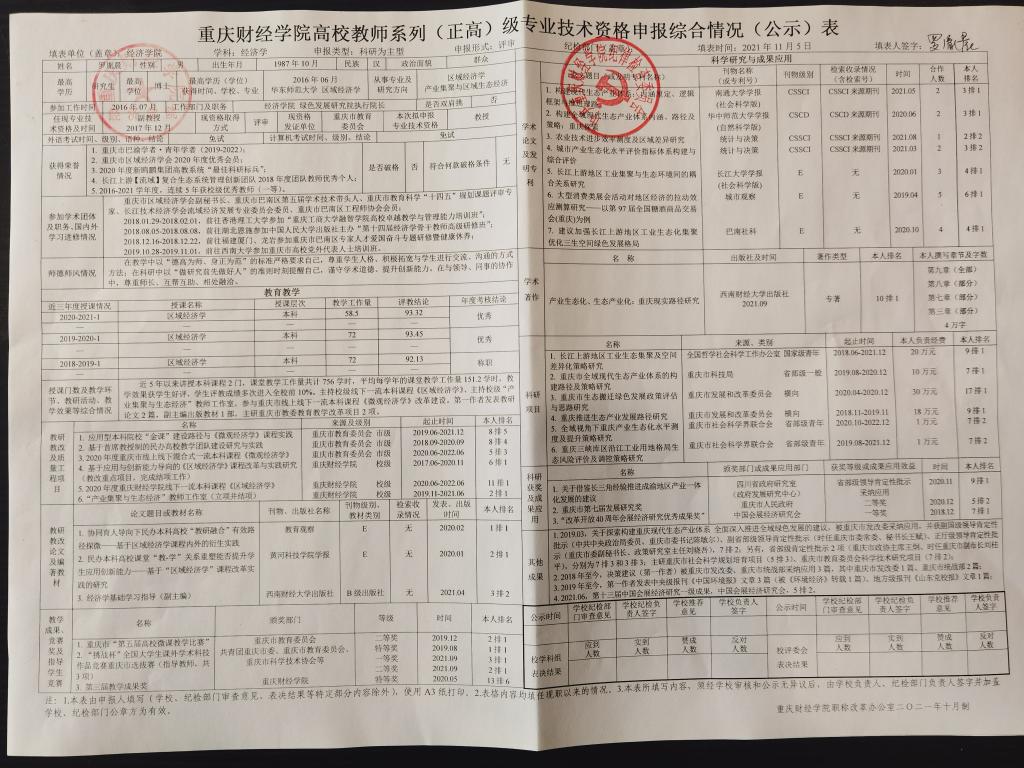 重庆财经学院高校教师系列（正高）级专业技术资格申报综合情况（公示）表
填表单位（盖章）经济学院 学科：经济学 申报类型：科研为主型 申报形式：评审
填表时间：2021 年 11 月 5 日 填表人签字：
姓名 罗胤晨 性别 男 出生年月 1987 年 10 月 民族 汉 政治面貌 群众
最高学历 研究生 最高学位 博士 最高学历（学位）获得时间、学校、专业 2016 年 06 月 华东师范大学 区域经济学 从事专业及研究方向 区域经济学 产业集聚与区域生态经济
参加工作时间 2016 年 07 月 工作部门及职务 经济学院 绿色发展研究院执行院长 是否双肩挑 否
任现专业技术资格及时间 副教授 2017 年 12 月 现资格取得方式 评审 现资格发证单位 重庆市教育委员会 本次拟申报专业技术资格 教授
外语考试时间、级别、语种、结论 免试 计算机考试时间、级别、结论 免试
获得荣誉情况
1. 重庆市巴渝学者·青年学者（2019-2022）；
2. 重庆市区域经济学会 2020 年度优秀会员；
3. 2020 年度新鸥鹏集团高教系统“最佳科研标兵”；
4. 长江上游【流域】复合生态系统管理创新团队 2018 年度团队教师优秀个人；
5. 2016-2021 学年度，连续 5 年获校级优秀教师（一等）。
是否破格 否 符合何款破格条件 无
参加学术团体及职务、国内外学习进修情况
重庆市区域经济学会副秘书长、重庆市巴南区第五届学术技术带头人、重庆市教育科学“十四五”规划课题评审专家、长江技术经济学会流域经济发展专业委员会委员、重庆市巴南区工程师协会会员；
2018.01.29-2018.02.01，前往香港理工大学参加“重庆工商大学融智学院高校卓越教学与管理能力培训班”；
2018.08.05-2018.08.08，前往湖北恩施参加中国人民大学出版社主办“第十四届经济学骨干教师高级研修班”；
2018.12.16-2018.12.22，前往福建厦门、龙岩参加重庆市巴南区专家人才爱国奋斗专题研修暨健康休养；
2019.10.28-2019.11.01，前往西南大学参加重庆市高校党外代表人士培训班。
师德师风情况
在教学中以“德高为师、身正为范”的标准严格要求自己，尊重学生人格，积极拓宽与学生进行交流、沟通的方式方法；在科研中以“做研究前先做好人”的准则时刻提醒自己，谨守学术道德、提升创新能力。在与领导、同事的协作中，尊重师长、互帮互助、相处融洽。
教育教学
近三年度授课情况 授课名称 授课层次 教学工作量 评教结论 年度考核结论
2020-2021-1 区域经济学 本科 58.5 93.32 优秀
— — — — —
2019-2020-1 区域经济学 本科 72 93.45 优秀
— — — — —
2018-2019-1 区域经济学 本科 72 92.13 称职
— — — — —
授课门数及教学环节、教研活动、教学效果等综合情况
近 5 年以来讲授本科课程 2 门，课堂教学工作量共计 756 学时，平均每学年的课堂教学工作量 151.2 学时。教学效果获学生好评，学生评教成绩多次进入全校前 10%。主持校级线下一流本科课程《区域经济学》、主持校级“产业集聚与生态经济”教师工作室。参与重庆市线上线下一流本科课程《微观经济学》改革建设。第一作者发表教研论文 2 篇，副主编出版教材 1 部，主研重庆市教委教育教学改革项目 2 项。
教研教改及质量工程项目
名称 来源及级别 起止时间 本人排名
1. 应用型本科院校“金课”建设路径与《微观经济学》课程实践 重庆市教育委员会 市级 2019.06-2021.12 8 排 5
2. 基于首席教授制的民办高校教学团队建设研究与实践 重庆市教育委员会 市级 2018.09-2020.09 8 排 4
3. 2020 年度重庆市线上线下混合式一流本科课程《微观经济学》 重庆市教育委员会 市级 2020.06-2022.06 5 排 3
4. 基于应用与创新能力导向的《区域经济学》课程改革与实践研究（教改重点项目，完成结项工作） 重庆财经学院 校级 2017.06-2020.11 6 排 1
5. 2020 年度校级线下一流本科课程《区域经济学》 重庆财经学院 校级 2020.06-2022.06 11 排 1
6. “产业集聚与生态经济”教师工作室（立项并结项） 重庆财经学院 校级 2019.11-2021.06 2 排 1
教研教改论文及编著教材
论文题目或教材名称 刊物、出版社名称 刊物级别、教材类别 检索收录情况 发表、出版时间 本人排名
1. 协同育人导向下民办本科高校“教研融合”有效路径探微——基于区域经济学课程内外的衍生实践 教育观察 E 无 2020.02 1 排 1
2. 民办本科高校课堂“教-学”关系重塑能否提升学生应用创新能力——基于“区域经济学”课程改革实践的研究 黄河科技学院学报 E 无 2020.01 2 排 1
3. 经济学基础学习指导（副主编） 西南财经大学出版社 B 级出版社 无 2021.04 3 排 2
教学成果、竞赛奖及指导学生竞赛
名称 颁奖部门 等级 时间 本人排名
1. 重庆市“第五届高校微课教学比赛” 重庆市教育委员会 二等奖 2019.12 2 排 1
2. “挑战杯”全国大学生课外学术科技作品竞赛重庆市选拔赛（指导教师，共 3 项） 共青团重庆市委、重庆市教育委员会、重庆市科学技术协会等 特等奖 2019.08 1 排 1
一等奖 2021.09 3 排 1
二等奖 2021.09 2 排 1
3. 第三届教学成果奖 重庆财经学院 特等奖 2020.05 13 排 6
科学研究与成果应用
学术论文及发明专利
刊物名称（或专利号） 刊物级别 检索收录情况（含检索号） 时间 合作人数 本人排名
南通大学学报（社会科学版） CSSCI CSSCI 来源期刊 2021.05 2 3 排 1
华中师范大学学报（自然科学版） CSCD CSCD 来源期刊 2020.06 2 3 排 1
3. 农业技术进步效率测度及区域差异研究 统计与决策 CSSCI CSSCI 来源期刊 2021.08 1 2 排 2
4. 城市产业生态化水平评价指标体系构建与综合评价 统计与决策 CSSCI CSSCI 来源期刊 2021.03 2 3 排 2
5. 长江上游地区工业集聚与生态环境间的耦合关系研究 长江大学学报（社会科学版） E 无 2020.01 3 4 排 1
6. 大型消费类展会活动对地区经济的拉动效应测算研究——以第 97 届全国糖酒商品交易会(重庆)为例 城市观察 E 无 2019.04 5 6 排 1
7. 建议加强长江上游地区工业生态化集聚 优化三生空间绿色发展格局 巴南社科 E 无 2020.10 4 4 排 1
学术著作
名 称 出版社及时间 著作类型 本人排名 本人撰写章节及字数
产业生态化、生态产业化：重庆现实路径研究 西南财经大学出版社 2021.09 专著 10 排 1 第九章（全部） 第八章（部分） 第七章（部分） 第三章（部分） 4 万字
科研项目
名称 来源、类别 起止时间 本人负责经费 本人排名
1. 长江上游地区工业生态集聚及空间差异化策略研究 全国哲学社会科学工作办公室 国家级青年 2018.06-2021.12 20 万元 9 排 1
2. 重庆市全域现代生态产业体系的构建路径及策略研究 重庆市科技局 省部级一般 2019.08-2020.12 10 万元 7 排 1
3. 重庆市生态搬迁绿色发展政策评估与思路研究 重庆市发展和改革委员会 横向 2020.04-2020.12 30 万元 17 排 1
4. 重庆推进生态产业化发展路径研究 重庆市发展和改革委员会 横向 2018.11-2019.11 18 万元 9 排 1
5. 全域视角下重庆产业生态化水平测度及提升策略研究 重庆市社会科学界联合会 省部级青年 2020.10-2022.12 1 万元 7 排 2
6. 重庆三峡库区沿江工业用地格局生态风险评价及调控策略研究 重庆市社会科学界联合会 省部级青年 2019.08-2021.12 1 万元 7 排 2
科研获奖及成果应用
名称 颁奖部门或成果应用部门 获奖等级或成果应用效益 时间 本人排名
1. 关于借鉴长三角经验推进成渝地区产业一体化发展的建议 四川省政府研究室（政府发展研究中心） 省部级领导肯定性批示 采纳应用 2020.11 9 排 1
2. 重庆市第七届发展研究奖 重庆市人民政府 二等奖 2020.12 5 排 2
3. “改革开放 40 周年会展经济研究优秀成果奖” 中国会展经济研究会 一等奖 2018.12 7 排 1
其他成果
1. 2019.03，关于探索构建重庆现代生态产业体系 全面深入推进全域绿色发展的建议，被重庆市发改委采纳应用。并获副国级领导肯定性批示（中共中央政治局委员、重庆市委书记陈敏尔）、副省部级领导肯定性批示（时任重庆市委常委、秘书长王赋）、正厅级领导肯定性批示（重庆市委副秘书长、政策研究室主任刘晓吾），7 排 2。另有，省部级肯定性批示 2 项（重庆市政协主席王炯、时任重庆市副市长刘桂平），分别为 7 排 3 和 3 排 3；主研重庆市社会科学规划培育项目（5 排 3）、重庆市教育委员会科学技术研究项目（7 排 2）；
2. 2018 年至今，决策建议（第一作者）被重庆市发改委、重庆市统战部采纳应用 3 篇，其中重庆市发改委 1 篇、重庆市统战部 2 篇；
3. 2019 年至今，第一作者发表中央级报刊《中国环境报》文章 3 篇（被《环境经济》转载 1 篇）、地方级报刊《山东党校报》文章 1 篇；
4. 2021.06，第十三届中国会展经济研究一级成果，中国会展经济研究会，5 排 2。
公示时间 学校纪检部门审查意见 学校纪检负责人签字 学校推荐意见 学校负责人签字 公示时间 学校纪检部门审查意见 学校纪检负责人签字 学校推荐意见 学校负责人签字
校学科组表决结果 应到人数 实到人数 赞成人数 反对人数 校评委会表决结果 应到人数 实到人数 赞成人数 反对人数
注：1.本表由申报人填写（学校、纪检部门审查意见、表决结果等特定部分内容除外），使用 A3 纸打印。2.表格内容均填任现职以来的情况。3.本表所填写内容，须经学校审核和公示无异议后，由学校负责人、纪检部门负责人签字并加盖
学校、纪检部门公章方为有效。
重庆财经学院职称改革办公室二〇二一年十月制